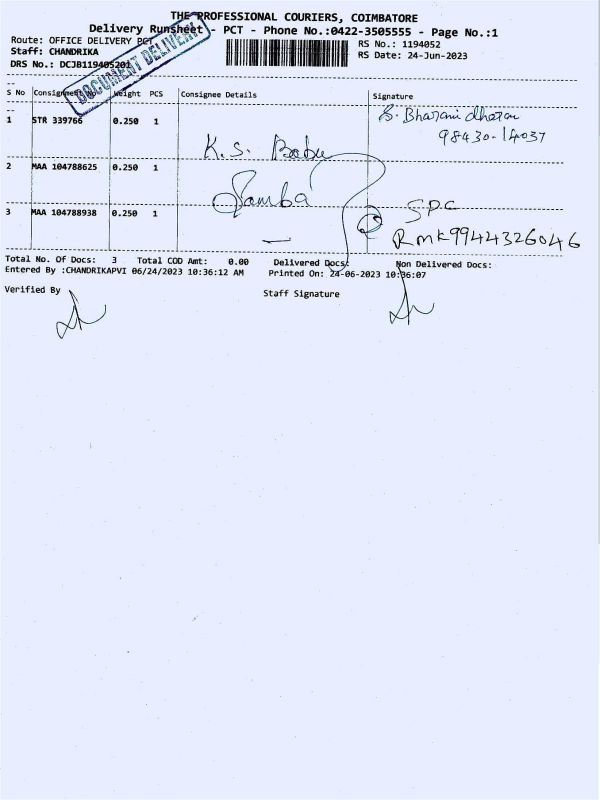 THE PROFESSIONAL COURIERS, COIMBATORE
Delivery Runsheet - PCT - Phone No.:0422-3505555 - Page No.:1
Route: OFFICE DELIVERY PCT
RS No.: 1194052
Staff: CHANDRIKA
RS Date: 24-Jun-2023
DRS No.: DCJB119405201
DOCUMENT DELIVERY
S No Consignment No Weight PCS Consignee Details Signature
1 STR 339766 0.250 1
S. Bharani dharan
98430-14037
K.S. Babu
2 MAA 104788625 0.250 1
3 MAA 104788938 0.250 1
SPC
RMK 9944326046
Total No. Of Docs: 3 Total COD Amt: 0.00 Delivered Docs: Non Delivered Docs:
Entered By :CHANDRIKAPVI 06/24/2023 10:36:12 AM Printed On: 24-06-2023 10:36:07
Verified By
Staff Signature